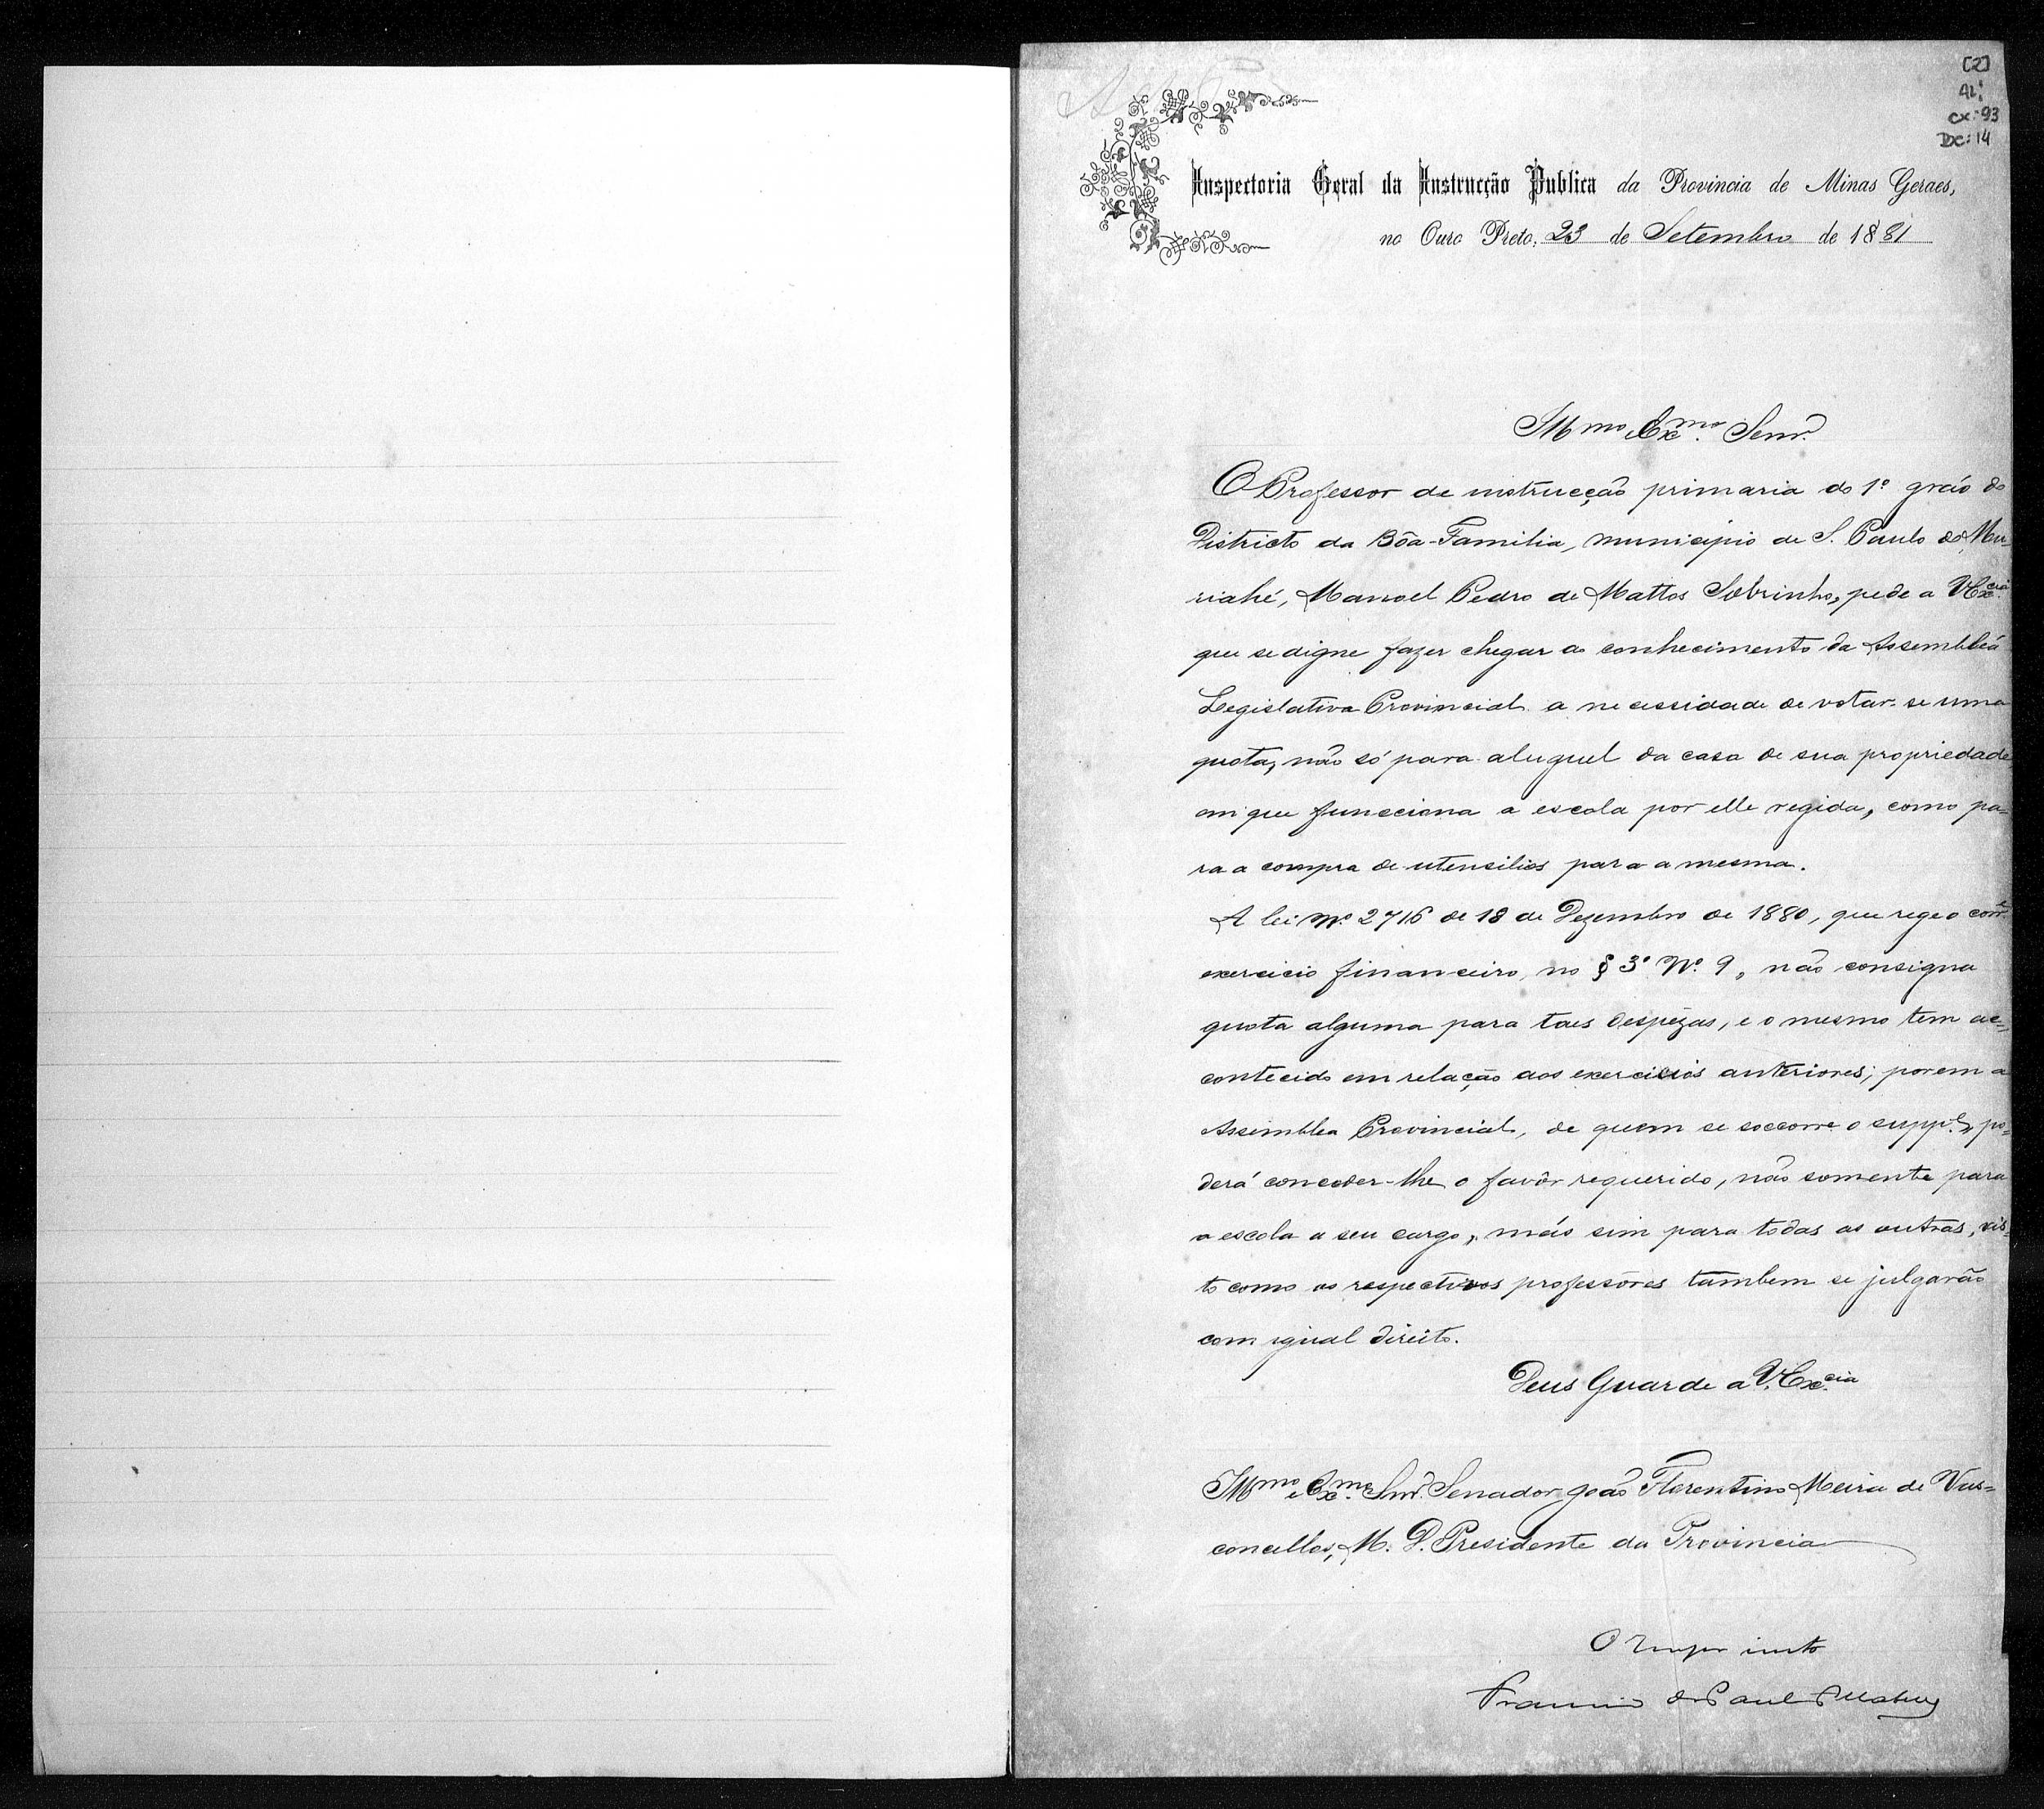 [2]
AL:
cx: 93
Doc: 14
Inspectoria Geral da Instrucção Publica da Provincia de Minas Geraes,
no Ouro Preto, 23 de Setembro de 1881
Illmo Exmo. Senr.
O Professor de instrucção primaria do 1º gráo do
Districto da Bôa-Familia, municipio de S. Paulo do Mu-
riahé, Manoel Pedro de Mattos Sobrinho, pede a V Excia.
que se digne fazer chegar ao conhecimento da Assembléa
Legislativa Provincial a necessidade de votar-se uma
quota, não só para aluguel da casa de sua propriedade
em que funcciona a escola por elle regida, como pa-
ra a compra de utensilios para a mesma.
A lei Nº 2716 de 18 de Dezembro de 1880, que rege o corre.
exercicio financeiro, no § 3º Nº 9, não consigna
quota alguma para taes despezas, e o mesmo tem ac-
contecido em relação aos exercicios anteriores; porem a
Assemblea Provincial, de quem se soccorre o suppe., po-
derá conceder-lhe o favôr requerido, não somente para
a escola a seu cargo, más sim para todas as outras, vis-
to como os respectivos professôres tambem se julgarão
com igual direito.
Deus Guarde a V. Excia
Illmo e Exmo. Snr. Senador João Florentino Meira de Vas-
concellos, M. D. Presidente da Provincia
O
de Paul